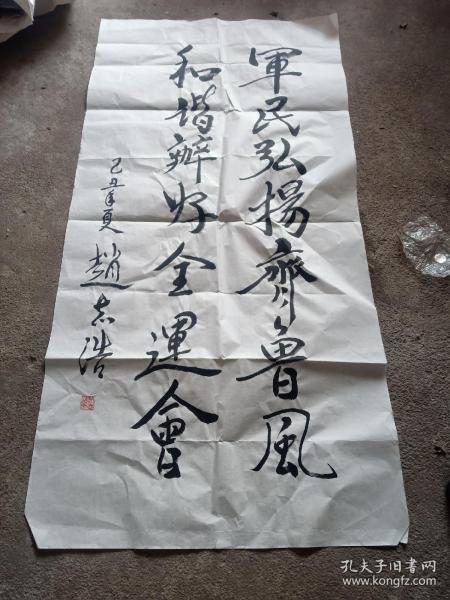 軍民弘揚齊魯風
和諧辦好全運會
己丑年夏 趙志浩
孔夫子旧书网
www.kongfz.com